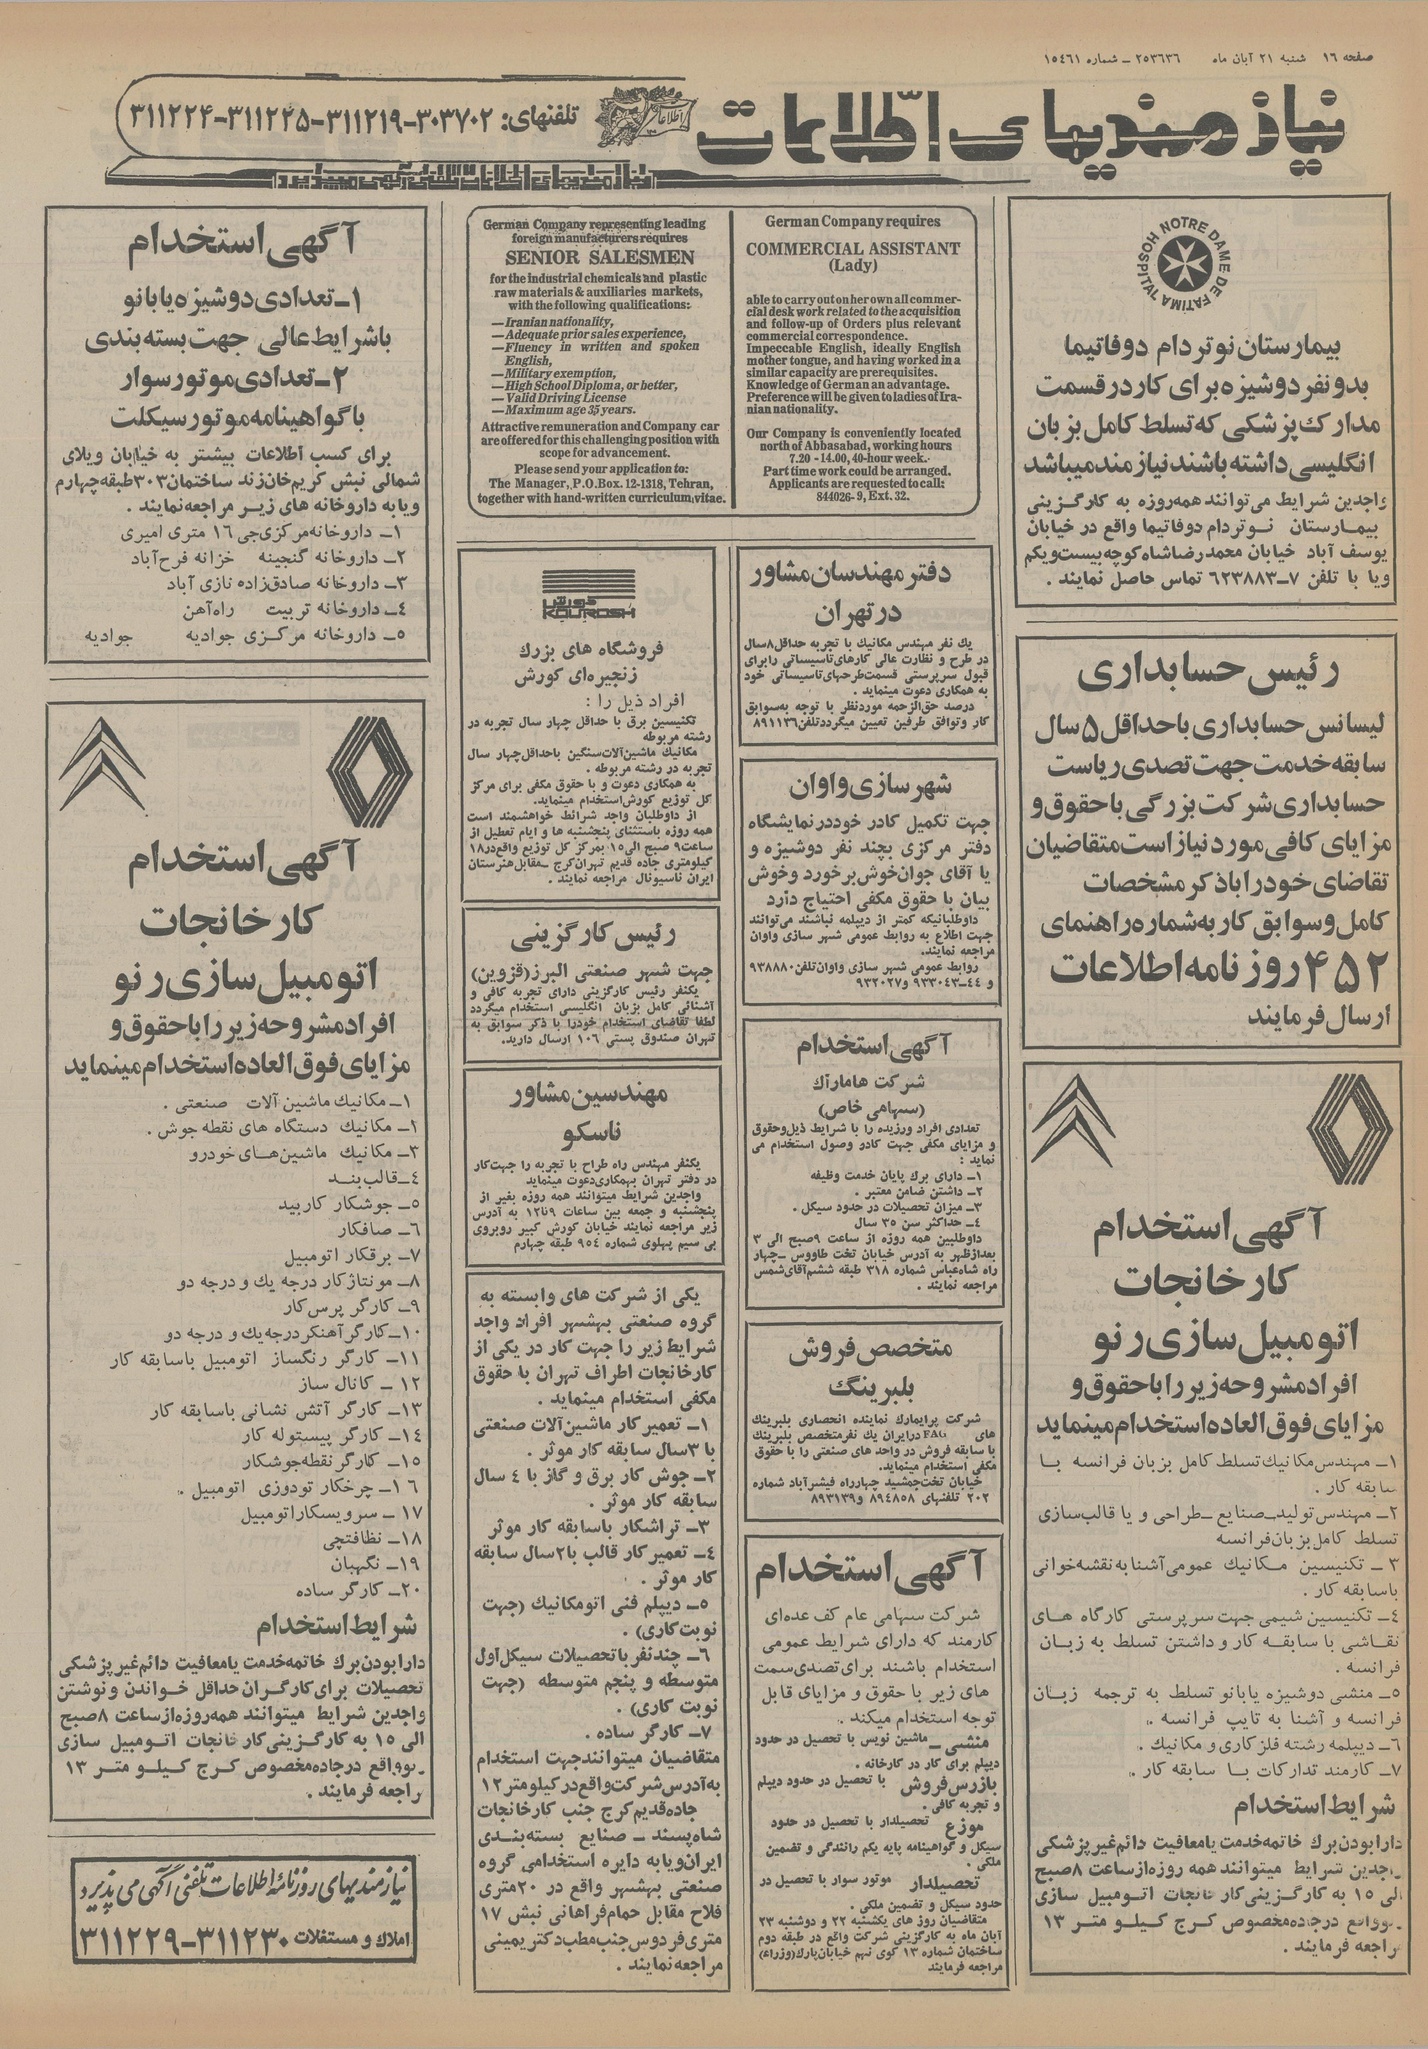 صفحه ۱۶ شنبه ۲۱ آبان ماه ۲۵۳۶۳۶ ـ شماره ۱۵۴۶۱
نیازمندیهای اطلاعات
تلفنهای: ۳۰۳۷۰۲-۳۱۱۲۱۹-۳۱۱۲۲۵-۳۱۱۲۲۴
نیازمندیهای اطلاعات تلفنی آگهی میپذیرد
NOTRE DAME DE FATIMA HOSPITAL
بیمارستان نوتردام دوفاتیما
بدونفر دوشیزه برای کار در قسمت
مدارک پزشکی که تسلط کامل بزبان
انگلیسی داشته باشند نیازمند میباشد
واجدین شرایط می‌توانند همه‌روزه به کارگزینی
بیمارستان نوتردام دوفاتیما واقع در خیابان
یوسف آباد خیابان محمدرضاشاه کوچه بیست‌ویکم
ویا با تلفن ۷-۶۲۳۸۸۳ تماس حاصل نمایند .
رئیس حسابداری
لیسانس حسابداری با حداقل ۵ سال
سابقه خدمت جهت تصدی ریاست
حسابداری شرکت بزرگی با حقوق و
مزایای کافی مورد نیاز است متقاضیان
تقاضای خود را با ذکر مشخصات
کامل و سوابق کار به شماره راهنمای
۴۵۲ روزنامه اطلاعات
ارسال فرمایند
آگهی استخدام
کارخانجات
اتومبیل سازی رنو
افراد مشروحه زیر را با حقوق و
مزایای فوق العاده استخدام مینماید
۱ـ مهندس مکانیک تسلط کامل بزبان فرانسه با
سابقه کار .
۲ـ مهندس تولید ـ صنایع ـ طراحی و یا قالب‌سازی
تسلط کامل بزبان فرانسه
۳ ـ تکنیسین مکانیک عمومی آشنا به نقشه‌خوانی
باسابقه کار .
۴ـ تکنیسین شیمی جهت سرپرستی کارگاه های
نقاشی با سابقه کار و داشتن تسلط به زبان
فرانسه .
۵ـ منشی دوشیزه یا بانو تسلط به ترجمه زبان
فرانسه و آشنا به تایپ فرانسه .
۶ـ دیپلمه رشته فلزکاری و مکانیک .
۷ـ کارمند تدارکات با سابقه کار .
شرایط استخدام
دارا بودن برک خاتمه خدمت یا معافیت دائم غیر پزشکی
واجدین شرایط میتوانند همه روزه از ساعت ۸ صبح
الی ۱۵ به کارگزینی کارخانجات اتومبیل سازی
رنو واقع در جاده مخصوص کرج کیلومتر ۱۳
مراجعه فرمایند .
German Company requires
COMMERCIAL ASSISTANT
(Lady)
able to carry out on her own all commer-
cial desk work related to the acquisition
and follow-up of Orders plus relevant
commercial correspondence.
Impeccable English, ideally English
mother tongue, and having worked in a
similar capacity are prerequisites.
Knowledge of German an advantage.
Preference will be given to ladies of Ira-
nian nationality.
Our Company is conveniently located
north of Abbasabad, working hours
7.20 - 14.00, 40-hour week.
Part time work could be arranged.
Applicants are requested to call:
844026-9, Ext. 32.
German Company representing leading
foreign manufacturers requires
SENIOR SALESMEN
for the industrial chemicals and plastic
raw materials & auxiliaries markets,
with the following qualifications:
—Iranian nationality,
—Adequate prior sales experience,
—Fluency in written and spoken
English,
—Military exemption,
—High School Diploma, or better,
—Valid Driving License
—Maximum age 35 years.
Attractive remuneration and Company car
are offered for this challenging position with
scope for advancement.
Please send your application to:
The Manager, P.O.Box. 12-1318, Tehran,
together with hand-written curriculum vitae.
دفتر مهندسان مشاور
در تهران
یک نفر مهندس مکانیک با تجربه حداقل ۸ سال
در طرح و نظارت عالی کارهای تاسیساتی را برای
قبول سرپرستی قسمت طرحهای تاسیساتی خود
به همکاری دعوت مینماید .
درصد حق‌الزحمه مورد نظر با توجه به سوابق
کار و توافق طرفین تعیین میگردد تلفن ۸۹۱۱۳۶
شهرسازی واوان
جهت تکمیل کادر خود در نمایشگاه
دفتر مرکزی بچند نفر دوشیزه و
یا آقای جوان خوش برخورد و خوش
بیان با حقوق مکفی احتیاج دارد
داوطلبانیکه کمتر از دیپلمه نباشند می‌توانند
جهت اطلاع به روابط عمومی شهر سازی واوان
مراجعه نمایند.
روابط عمومی شهر سازی واوان تلفن ۹۳۸۸۸۰
و ۴۴-۹۳۳۰۴۳ و ۹۳۲۰۲۷
آگهی استخدام
شرکت هامارآک
(سهامی خاص)
تعدادی افراد ورزیده را با شرایط ذیل وحقوق
و مزایای مکفی جهت کادر وصول استخدام می
نماید :
۱ـ دارای برک پایان خدمت وظیفه
۲ـ داشتن ضامن معتبر .
۳ـ میزان تحصیلات در حدود سیکل .
۴ـ حداکثر سن ۳۵ سال
داوطلبین همه روزه از ساعت ۹ صبح الی ۳
بعدازظهر به آدرس خیابان تخت طاووس ـ چهار
راه شاه‌عباس شماره ۳۱۸ طبقه ششم آقای شمس
مراجعه نمایند .
متخصص فروش
بلبرینگ
شرکت پرایمارک نماینده انحصاری بلبرینک
های FAG در ایران یک نفر متخصص بلبرینک
با سابقه فروش در واحد های صنعتی را با حقوق
مکفی استخدام مینماید.
خیابان تخت‌جمشید چهارراه فیشرآباد شماره
۲۰۲ تلفنهای ۸۹۴۸۵۸ و ۸۹۳۱۳۹
آگهی استخدام
شرکت سهامی عام کف عده‌ای
کارمند که دارای شرایط عمومی
استخدام باشند برای تصدی سمت
های زیر با حقوق و مزایای قابل
توجه استخدام میکند .
منشی ـ ماشین نویس با تحصیل در حدود
دیپلم برای کار در کارخانه .
بازرس فروش با تحصیل در حدود دیپلم
و تجربه کافی .
موزع تحصیلدار با تحصیل در حدود
سیکل و گواهینامه پایه یکم رانندگی و تضمین
ملکی .
تحصیلدار موتور سوار با تحصیل در
حدود سیکل و تضمین ملکی .
متقاضیان روز های یکشنبه ۲۲ و دوشنبه ۲۳
آبان ماه به کارگزینی شرکت واقع در طبقه دوم
ساختمان شماره ۱۳ کوی نهم خیابان پارک (وزراء)
مراجعه فرمایند
کورش
KOUROSH
فروشگاه های بزرک
زنجیره‌ای کورش
افراد ذیل را :
تکنیسین برق با حداقل چهار سال تجربه در
رشته مربوطه
مکانیک ماشین‌آلات سنگین با حداقل چهار سال
تجربه در رشته مربوطه .
به همکاری دعوت و با حقوق مکفی برای مرکز
کل توزیع کورش استخدام مینماید.
از داوطلبان واجد شرائط خواهشمند است
همه روزه باستثنای پنجشنبه ها و ایام تعطیل از
ساعت ۹ صبح الی ۱۵ بمرکز کل توزیع واقع در ۱۸
کیلومتری جاده قدیم تهران کرج ـ مقابل هنرستان
ایران ناسیونال مراجعه نمایند .
رئیس کارگزینی
جهت شهر صنعتی البرز (قزوین)
یکنفر رئیس کارگزینی دارای تجربه کافی و
آشنائی کامل بزبان انگلیسی استخدام میگردد
لطفا تقاضای استخدام خودرا با ذکر سوابق به
تهران صندوق پستی ۱۰۶ ارسال دارید.
مهندسین مشاور
ناسکو
یکنفر مهندس راه طراح با تجربه را جهت کار
در دفتر تهران بهمکاری دعوت مینماید
واجدین شرایط میتوانند همه روزه بغیر از
پنجشنبه و جمعه بین ساعات ۹ تا ۱۲ به آدرس
زیر مراجعه نمایند خیابان کورش کبیر روبروی
بی سیم پهلوی شماره ۹۵۴ طبقه چهارم
یکی از شرکت های وابسته به
گروه صنعتی بهشهر افراد واجد
شرایط زیر را جهت کار در یکی از
کارخانجات اطراف تهران با حقوق
مکفی استخدام مینماید .
۱ـ تعمیر کار ماشین‌آلات صنعتی
با ۳ سال سابقه کار موثر .
۲ـ جوش کار برق و گاز با ۴ سال
سابقه کار موثر .
۳ـ تراشکار باسابقه کار موثر
۴ـ تعمیر کار قالب با ۲ سال سابقه
کار موثر .
۵ـ دیپلم فنی اتومکانیک (جهت
نوبت‌کاری) .
۶ـ چند نفر با تحصیلات سیکل اول
متوسطه و پنجم متوسطه (جهت
نوبت کاری) .
۷ـ کارگر ساده .
متقاضیان میتوانند جهت استخدام
به آدرس شرکت واقع در کیلومتر ۱۲
جاده قدیم کرج جنب کارخانجات
شاه‌پسند ـ صنایع بسته‌بندی
ایران و یا به دایره استخدامی گروه
صنعتی بهشهر واقع در ۲۰ متری
فلاح مقابل حمام فراهانی نبش ۱۷
متری فردوس جنب مطب دکتر یمینی
مراجعه نمایند .
آگهی استخدام
۱ـ تعدادی دوشیزه یا بانو
با شرایط عالی جهت بسته بندی
۲ـ تعدادی موتور سوار
با گواهینامه موتور سیکلت
برای کسب اطلاعات بیشتر به خیابان ویلای
شمالی نبش کریم‌خان زند ساختمان ۳۰۳ طبقه چهارم
ویا به داروخانه های زیر مراجعه نمایند .
۱ـ داروخانه مرکزی جی ۱۶ متری امیری
۲ـ داروخانه گنجینه خزانه فرح‌آباد
۳ـ داروخانه صادق‌زاده نازی آباد
۴ـ داروخانه تربیت راه‌آهن
۵ـ داروخانه مرکزی جوادیه جوادیه
آگهی استخدام
کارخانجات
اتومبیل سازی رنو
افراد مشروحه زیر را با حقوق و
مزایای فوق العاده استخدام مینماید
۱ـ مکانیک ماشین آلات صنعتی .
۱ـ مکانیک دستگاه های نقطه جوش .
۳ـ مکانیک ماشین‌های خودرو
۴ـ قالب بند
۵ـ جوشکار کاربید
۶ـ صافکار
۷ـ برقکار اتومبیل
۸ـ مونتاژکار درجه یک و درجه دو
۹ـ کارگر پرس‌کار
۱۰ـ کارگر آهنکر درجه یک و درجه دو
۱۱ـ کارگر رنگساز اتومبیل باسابقه کار
۱۲ ـ کانال ساز
۱۳ـ کارگر آتش نشانی باسابقه کار
۱۴ـ کارگر پیستوله کار
۱۵ـ کارگر نقطه جوشکار
۱۶ـ چرخکار تودوزی اتومبیل .
۱۷ ـ سرویسکار اتومبیل
۱۸ـ نظافتچی
۱۹ـ نگهبان
۲۰ـ کارگر ساده
شرایط استخدام
دارا بودن برک خاتمه خدمت یا معافیت دائم غیر پزشکی
تحصیلات برای کارگران حداقل خواندن و نوشتن
واجدین شرایط میتوانند همه روزه از ساعت ۸ صبح
الی ۱۵ به کارگزینی کارخانجات اتومبیل سازی
رنو واقع در جاده مخصوص کرج کیلومتر ۱۳
مراجعه فرمایند .
نیازمندیهای روزنامه اطلاعات تلفنی آگهی می پذیرد
املاک و مستغلات ۳۱۱۲۳۰-۳۱۱۲۲۹